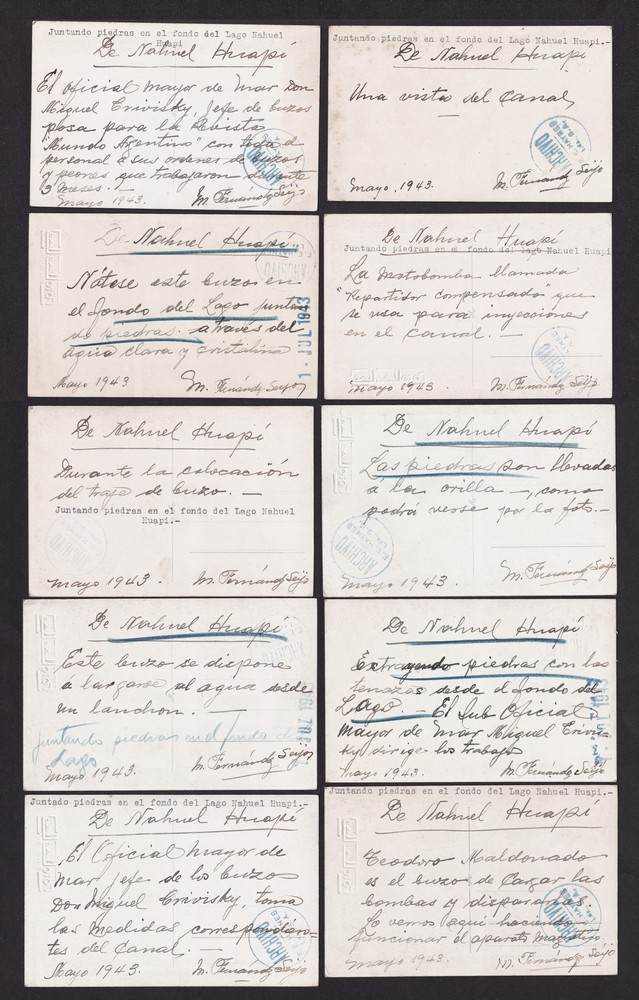 Juntando piedras en el fondo del Lago Nahuel
Huapi
De Nahuel Huapí
El Oficial mayor de mar Don
Miguel Crivisky, Jefe de buzos
posa para la Revista
"Mundo Argentino" con todo el
personal a sus ordenes de buzos
y peones que trabajaron durante
3 meses. —
Mayo 1943. M. Fernández Seijo
ARCHIVO
Juntando piedras en el fondo del Lago Nahuel Huapi.-
De Nahuel Huapí
Una vista del Canal,
—
Mayo. 1943. M. Fernandz Seijo
ARCHIVO
De Nahuel Huapí.
Nótese este buzo en
el fondo del Lago juntan
do piedras. a través del
agua clara y cristalina
Mayo 1943 M. Fernándz Seijo
ARCHIVO
1 - JUL 1943
De Nahuel Huapí
Juntando piedras en el fondo del Lago Nahuel Huapi
La motobomba llamada
"Repartidor compensado" que
se usa para inyecciones
en el Canal. —
Mayo 1943. M. Fernándz Seijo
ARCHIVO
De Nahuel Huapí
Durante la colocación
del traje de buzo. —
Juntando piedras en el fondo del Lago Nahuel
Huapi.-
Mayo 1943. M. Fernándz Seijo
ARCHIVO
De Nahuel Huapí
Las piedras son llevadas
á la orilla —, como
podrá verse por la foto.—
Mayo 1943. M. Fernándz Seijo
ARCHIVO
De Nahuel Huapí
Este buzo se dispone
á largarse al agua desde
un lanchon. —
juntando piedras en el fondo del
Lago
Mayo 1943. M. Fernándz Seijo
De Nahuel Huapí
Extrayendo piedras con las
tenazas desde el fondo del
Lago. — El Sub Oficial
mayor de Mar Miguel Crivis-
ky dirige los trabajos
Mayo 1943. M. Fernándz Seijo
Juntado piedras en el fondo del Lago Nahuel Huapi.-
De Nahuel Huapí
El Oficial mayor de
mar jefe de los buzos
Don Miguel Crivisky, toma
las medidas correspondien-
tes del Canal. —
Mayo 1943. M. Fernándz Seijo
ARCHIVO
Juntando piedras en el fondo del Lago Nahuel Huapi.-
De Nahuel Huapí
Teodoro Maldonado
es el buzo de Cargar las
bombas y dispararlas.
Lo vemos aquí haciendo
funcionar el aparato
Mayo 1943. M. Fernándz Seijo
ARCHIVO